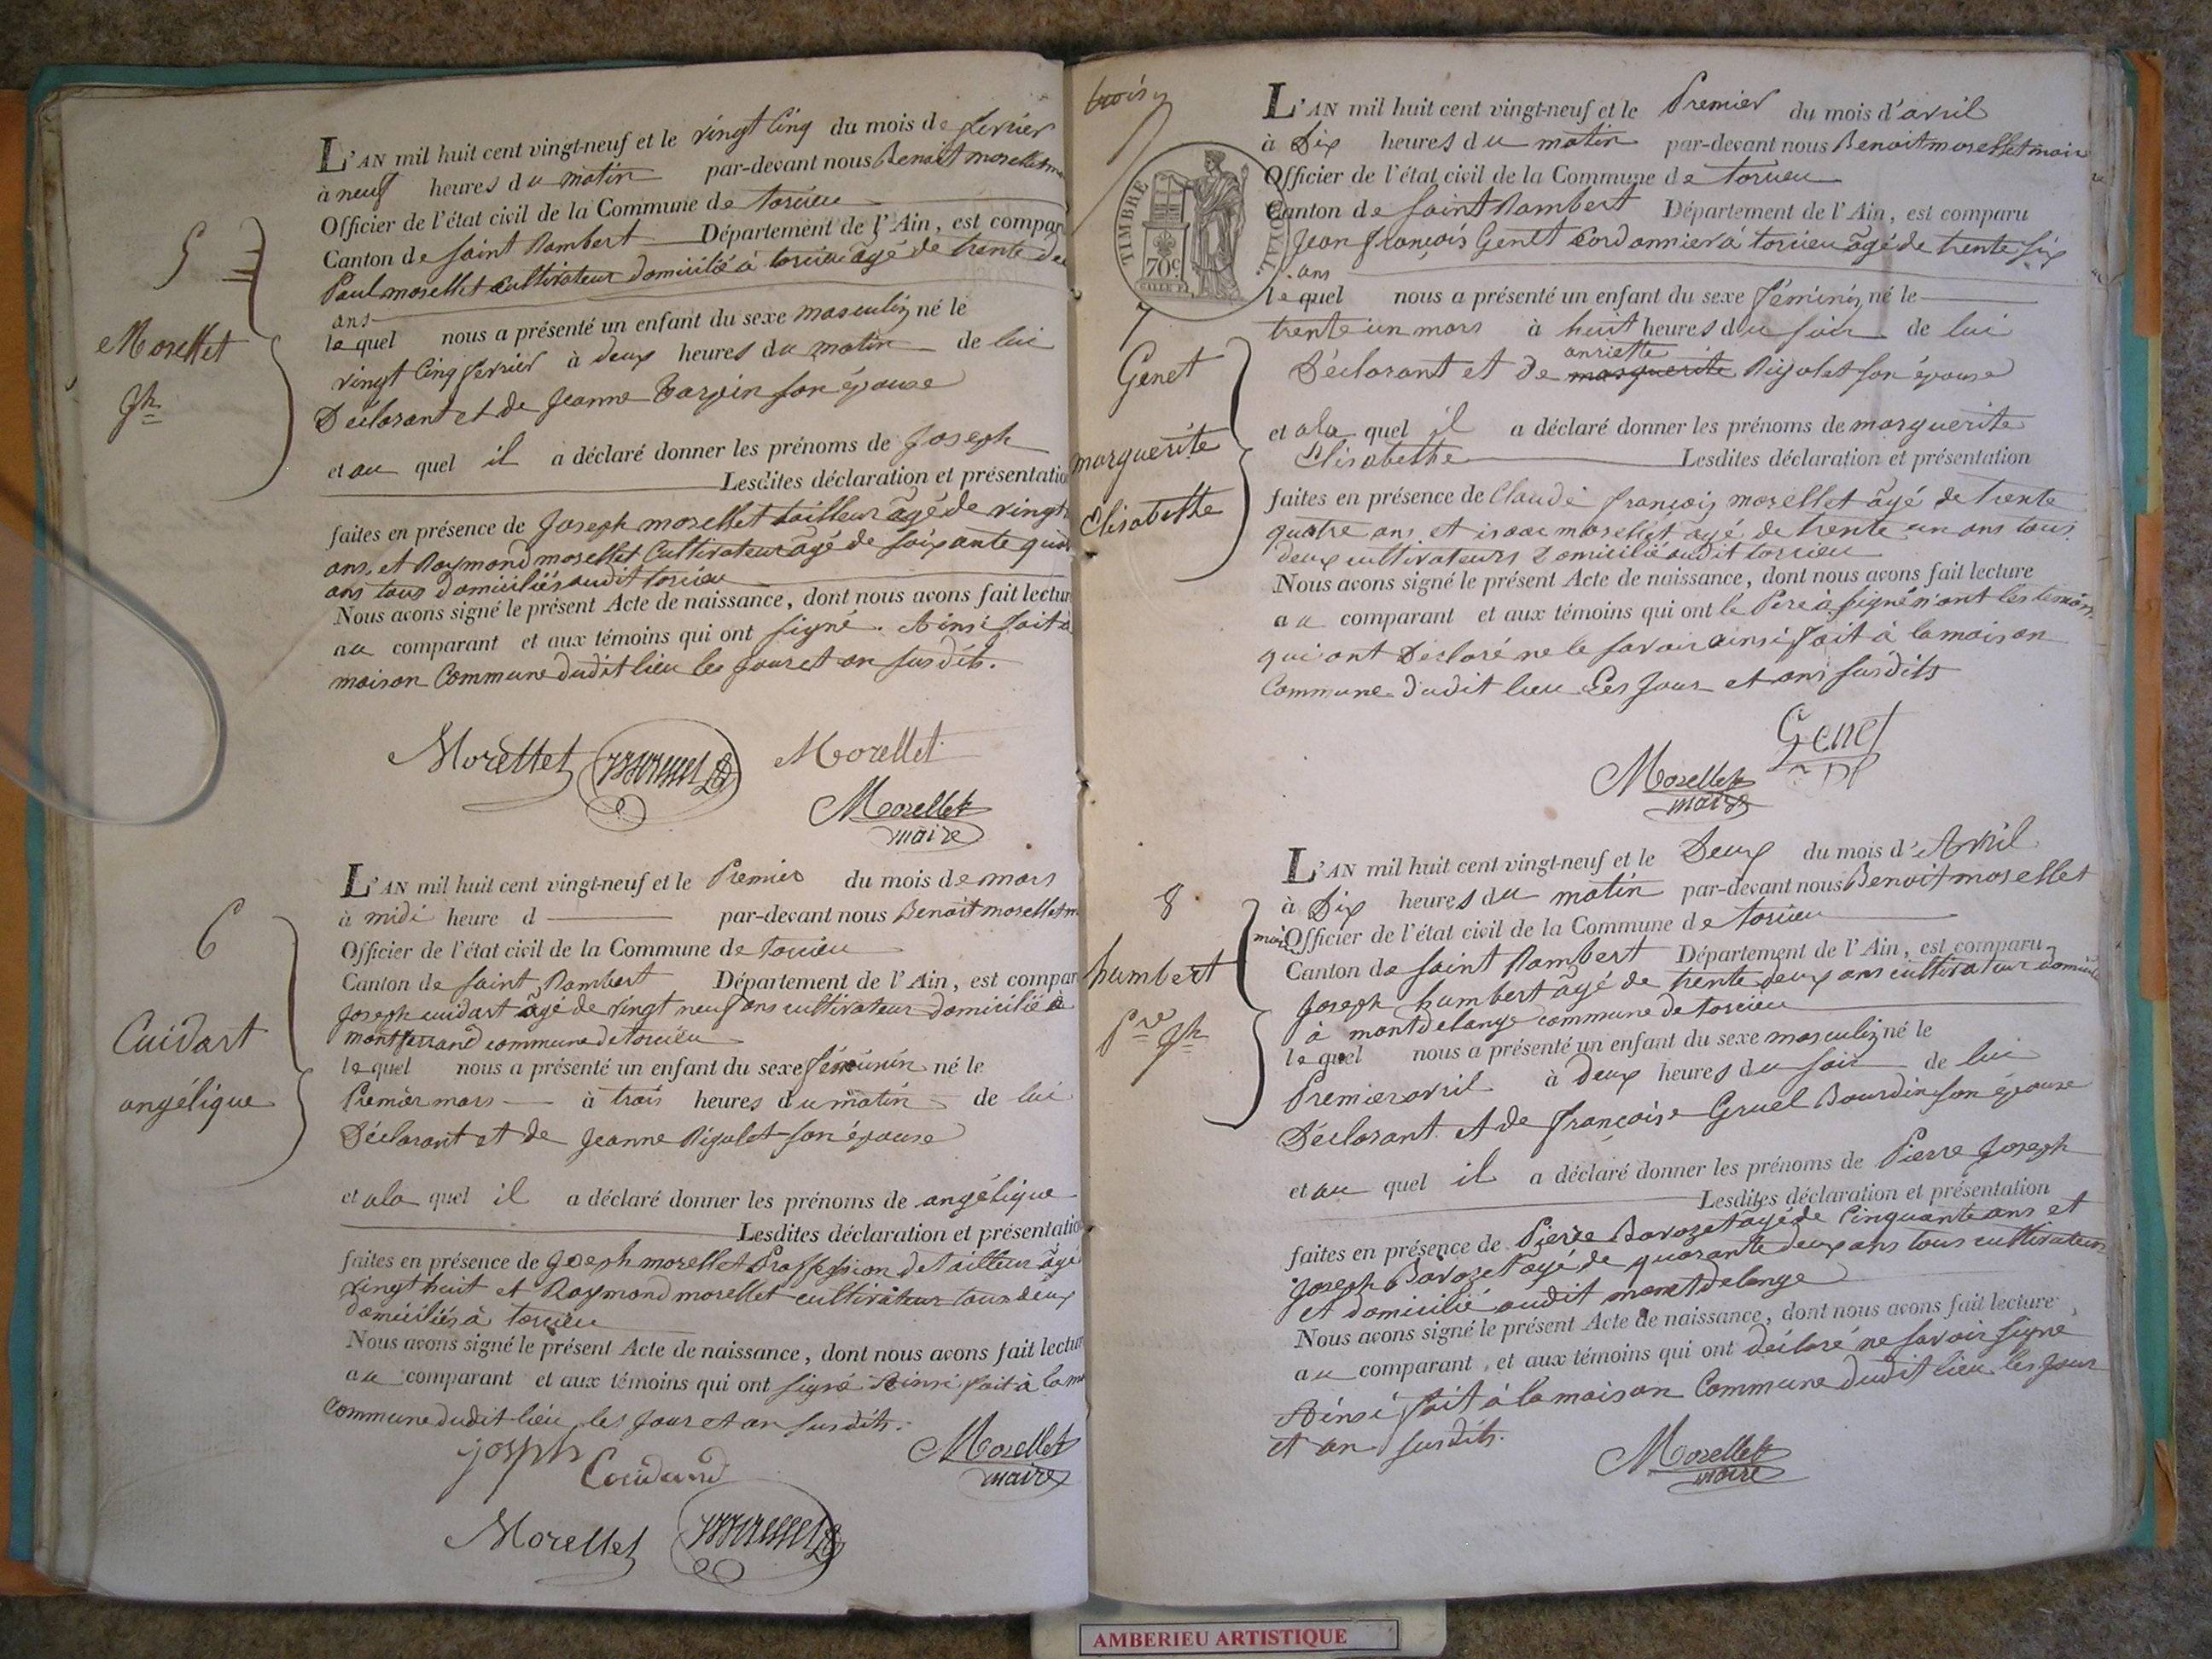 5
Morellet
Jh
L'AN mil huit cent vingt-neuf et le vingt cinq du mois de fevrier
à neuf heures du matin par-devant nous Benoit morellet
Officier de l'état civil de la Commune de torcieu
Canton de saint Rambert Département de l'Ain, est compar
Paul morellet cultivateur domicilié à torcieu âgé de trente
ans
lequel nous a présenté un enfant du sexe masculin né le
vingt cinq fevrier à deux heures du matin de lui
Déclarant et de Jeanne Tarpin son épouse
et au quel il a déclaré donner les prénoms de Joseph
Lesdites déclaration et présentatio
faites en présence de Joseph morellet tailleur âgé de vingt
ans, et Raymond morellet Cultivateur âgé de soixante
ans tous domiciliés audit torcieu
Nous avons signé le présent Acte de naissance, dont nous avons fait lectur
au comparant et aux témoins qui ont signé. Ainsi fait à
maison Commune dudit lieu les jour et an susdits.
Morellet Morellet
Morellet
maire
6
Cuidart
angélique
L'AN mil huit cent vingt-neuf et le Premier du mois de mars
à midi heure d par-devant nous Benoit morellet m
Officier de l'état civil de la Commune de torcieu
Canton de saint Rambert Département de l'Ain, est compar
Joseph cuidart âgé de vingt neuf ans cultivateur domicilié à
montferrand commune de torcieu
lequel nous a présenté un enfant du sexe féminin né le
Premier mars à trois heures du matin de lui
Déclarant et de Jeanne Rigolet son épouse
et ala quel il a déclaré donner les prénoms de angélique
Lesdites déclaration et présentatio
faites en présence de Joseph morellet Proffession de tailleur âgé
vingt huit et Raymond morellet cultivateur tous deux
domiciliés à torcieu
Nous avons signé le présent Acte de naissance, dont nous avons fait lectur
au comparant et aux témoins qui ont signé Ainsi fait à la m
commune dudit lieu les jour et an susdits.
joseph Cuidard
Morellet
maire
Morellet
TIMBRE ROYAL
70c
7
Genet
marguerite
Elisabethe
L'AN mil huit cent vingt-neuf et le Premier du mois d'avril
à Dix heures du matin par-devant nous Benoit morellet maire
Officier de l'état civil de la Commune de torcieu
Canton de saint Rambert Département de l'Ain, est comparu
Jean françois Genet Cordonnier à torcieu âgé de trente six
ans
lequel nous a présenté un enfant du sexe féminin né le
trente un mars à huit heures du soir de lui
anriette
Déclarant et de marguerite Rigolet son épouse
et ala quel il a déclaré donner les prénoms de marguerite
Elisabethe Lesdites déclaration et présentation
faites en présence de Claude françois morellet âgé de trente
quatre ans et isaac morellet âgé de trente un ans tous
deux cultivateurs domicilié audit torcieu
Nous avons signé le présent Acte de naissance, dont nous avons fait lecture
au comparant et aux témoins qui ont le Pere à signé n'ont les temoins
qui ont Déclaré ne le savoir ainsi fait à la maison
Commune dudit lieu Les Jour et ans susdits
Genet
Morellet
maire
8
humbert
Pre Jh
L'AN mil huit cent vingt-neuf et le Deux du mois d'Avril
à Dix heures du matin par-devant nous Benoit morellet
maire Officier de l'état civil de la Commune de torcieu
Canton de saint Rambert Département de l'Ain, est comparu
Joseph humbert âgé de trente deux ans cultivateur domicilié
à montdelange commune de torcieu
lequel nous a présenté un enfant du sexe masculin né le
Premier avril à deux heures du soir de lui
Déclarant et de françoise Gruel Bourdin son épouse
et au quel il a déclaré donner les prénoms de Pierre Joseph
Lesdites déclaration et présentation
faites en présence de Pierre Bavozet âgé de Cinquante ans et
Joseph Bavozet âgé de quarante deux ans tous cultivateurs
et domicilié audit montdelange
Nous avons signé le présent Acte de naissance, dont nous avons fait lecture
au comparant et aux témoins qui ont déclaré ne savoir signé
Ainsi fait à la maison Commune dudit lieu les jour
et an susdits.
Morellet
maire
AMBERIEU ARTISTIQUE